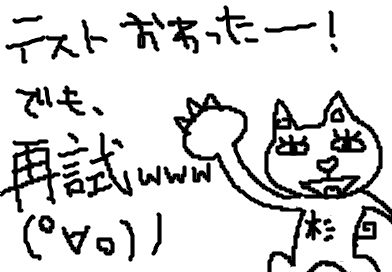 テストおわったー!
でも、
再試www
(°∀°))
松